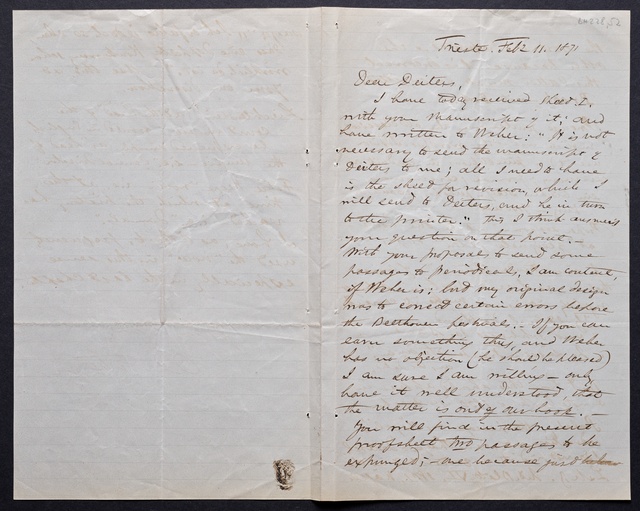 Trieste. Feb 11. 1871
Dear Deiters,
I have today received sheet 2.
with your manuscript of it; and
have written to Weber: "It is not
necessary to send the manuscript of
Deiters to me; all I need to have
is the sheet for revision, which I
will send to Deiters, and he in turn
to the printer." This I think answers
your question on that point.—
With your proposals to send some
passages to periodicals, I am content,
if Weber is; but my original design
was to correct certain errors before
the Beethoven festivals.— If you can
earn something thus, and Weber
has no objection (he should be pleased)
I am sure I am willing — only
have it well understood, that
the matter is out of our book.—
You will find in the present
proofsheet two passages to be
expunged; — one because just